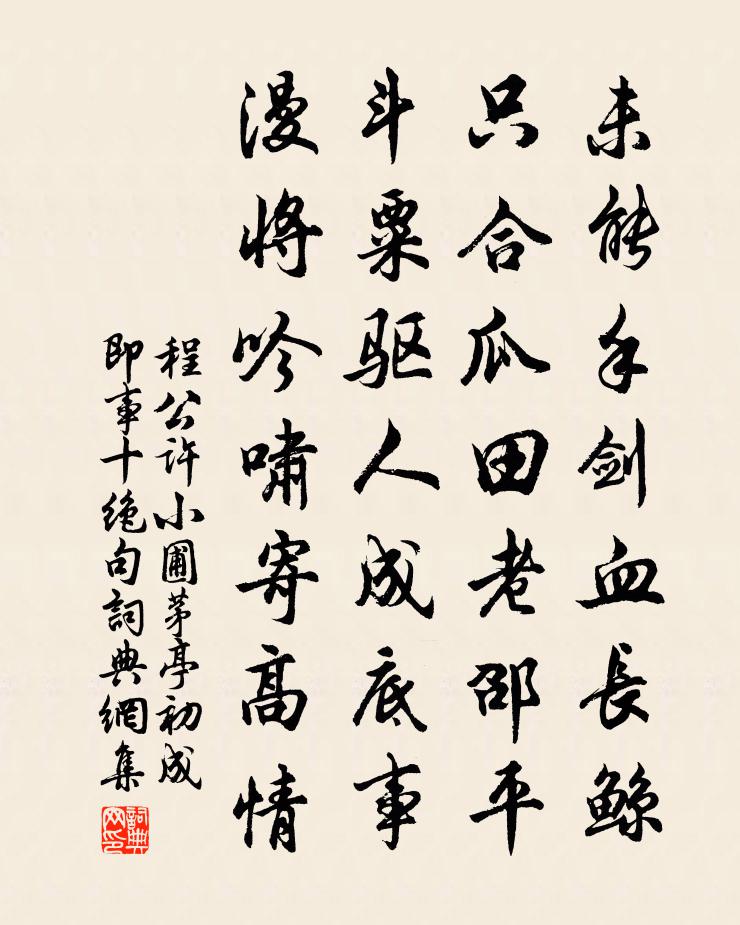 未能手劍血長鯨
只合瓜田老邵平
斗粟驱人成底事
漫將吟嘯寄高情
程公许小圃茅亭初成
即事十絕句詞典網集
詞典网印